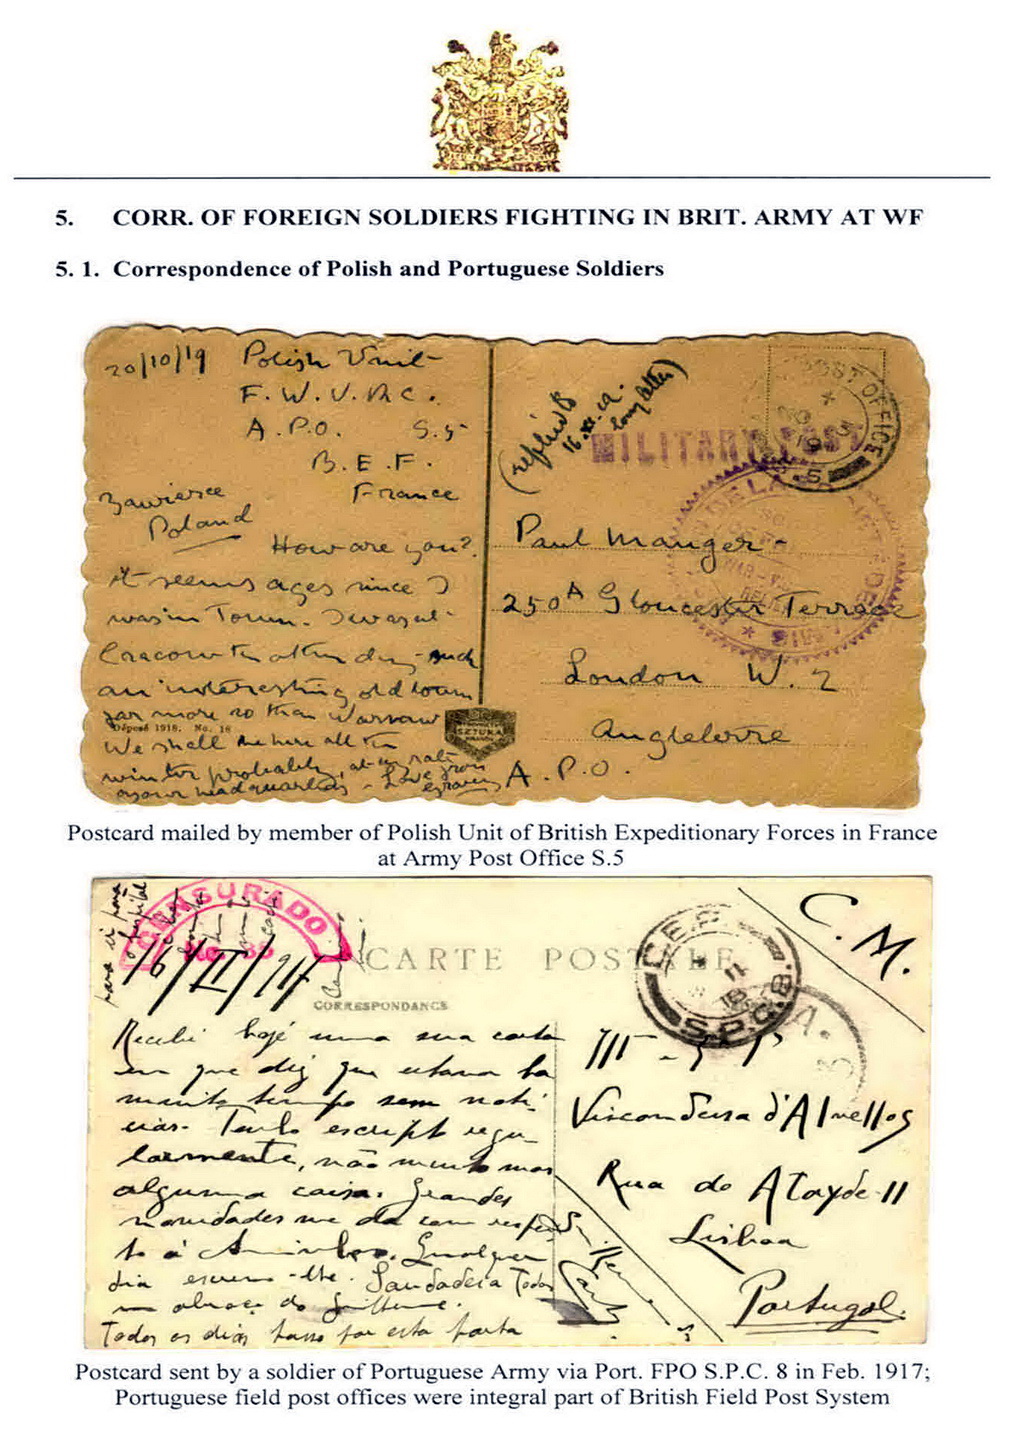 5. CORR. OF FOREIGN SOLDIERS FIGHTING IN BRIT. ARMY AT WF
5. 1. Correspondence of Polish and Portuguese Soldiers
20/10/19 Polish Unit
F. W. V. R. C.
A. P. O. S.5
B. E. F.
France
Zawierce
Poland
How are you?
it seems ages since I
was in Town. I was at
Cracow the other day such
an interesting old town
far more so than Warsaw
Déposé 1918. No. 16
We shall be here all the
winter probably, at any rate
headquarters - Love from
SZTUKA
(replied
16.XI.19.
long letter)
MILITARY POST
POST OFFICE
S.5
DE LA
Paul Manger -
250A Gloucester Terrace
London W. 2
Angleterre
A. P. O.
Postcard mailed by member of Polish Unit of British Expeditionary Forces in France
at Army Post Office S.5
CENSURADO
No 38
CARTE POSTALE
CORRESPONDANCE
C.E.P.
S.P.C. 8.
C. M.
Recebi hoje uma sua carta
em que diz que estava ha
muito tempo sem noti-
cias. Tenho escripto regu-
larmente, não muito mas
alguma coisa. Grandes
novidades me da com respei-
to á
dia escrevo-lhe. Saudades a Todos
um abraço do Guilherme.
Todos os dias passo por esta porta
Viscondessa d'Alvellos
Rua do Atayde 11
Lisboa
Portugal.
Postcard sent by a soldier of Portuguese Army via Port. FPO S.P.C. 8 in Feb. 1917;
Portuguese field post offices were integral part of British Field Post System